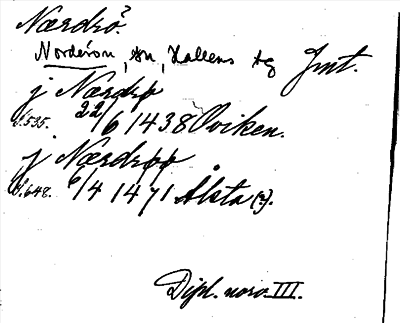 Nærdrö?
Norderön, sn, Hallens tg Jmt.
j Nærdrø
S. 535. 22/6 1438 Oviken.
j Nærdrøø
S. 648. 6/4 1471 Ålsta (?).
Dipl. norv. III.